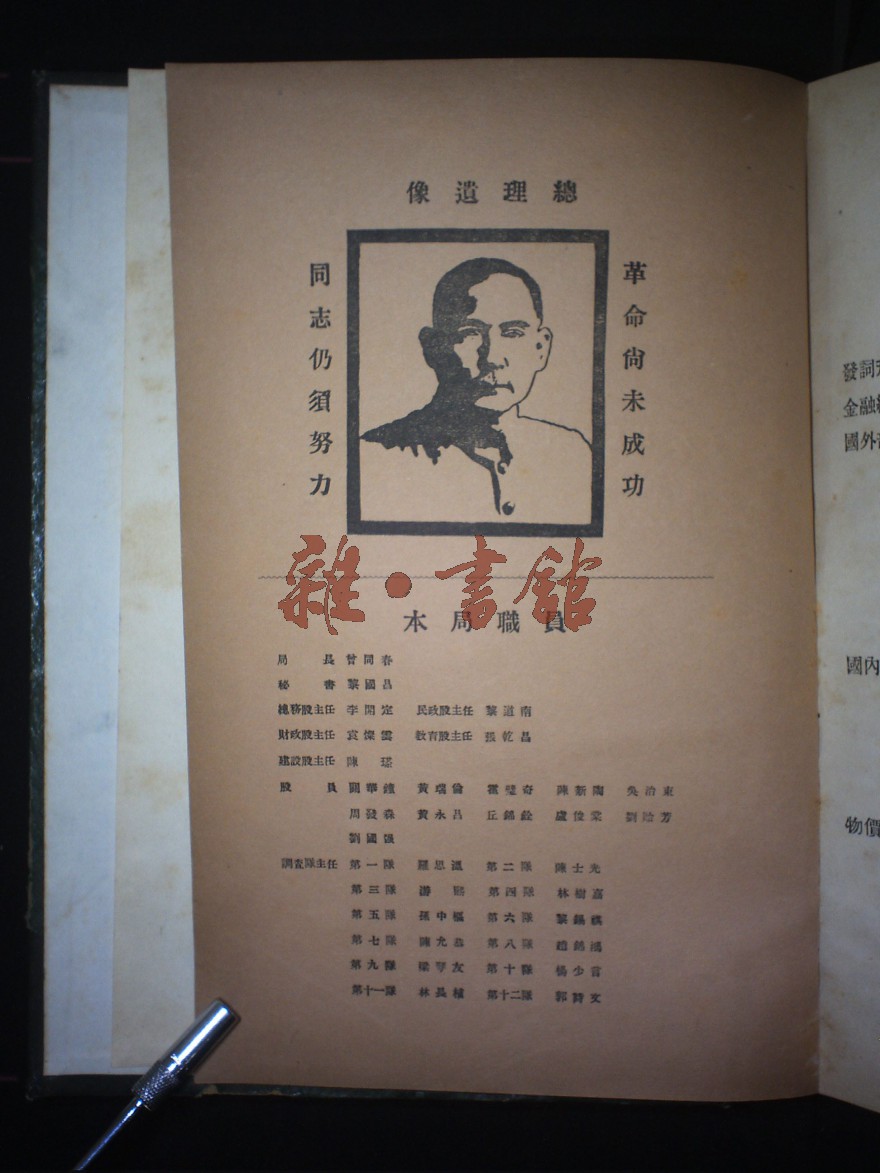 總理遺像
革命尚未成功
同志仍須努力
雜·書館
本局職員
局長 曾同春
秘書 黎國昌
總務股主任 李開定 民政股主任 黎道南
財政股主任 袁燦雲 教育股主任 張乾昌
建設股主任 陳
股員 關華鐘 黃瑞倫 霍璧奇 陳斯陶 吳治東
周發森 黃永昌 丘錦銓 盧俊棠 劉 芳
劉國強
調查隊主任 第一隊 羅恩溫 第二隊 陳士光
第三隊 游 第四隊 林樹嘉
第五隊 孫中樞 第六隊 黎錫祺
第七隊 陳允恭 第八隊 趙錦鴻
第九隊 梁琴友 第十隊 楊少言
第十一隊 林長植 第十二隊 郭詩文
發詞
金融
國外
國內
物價